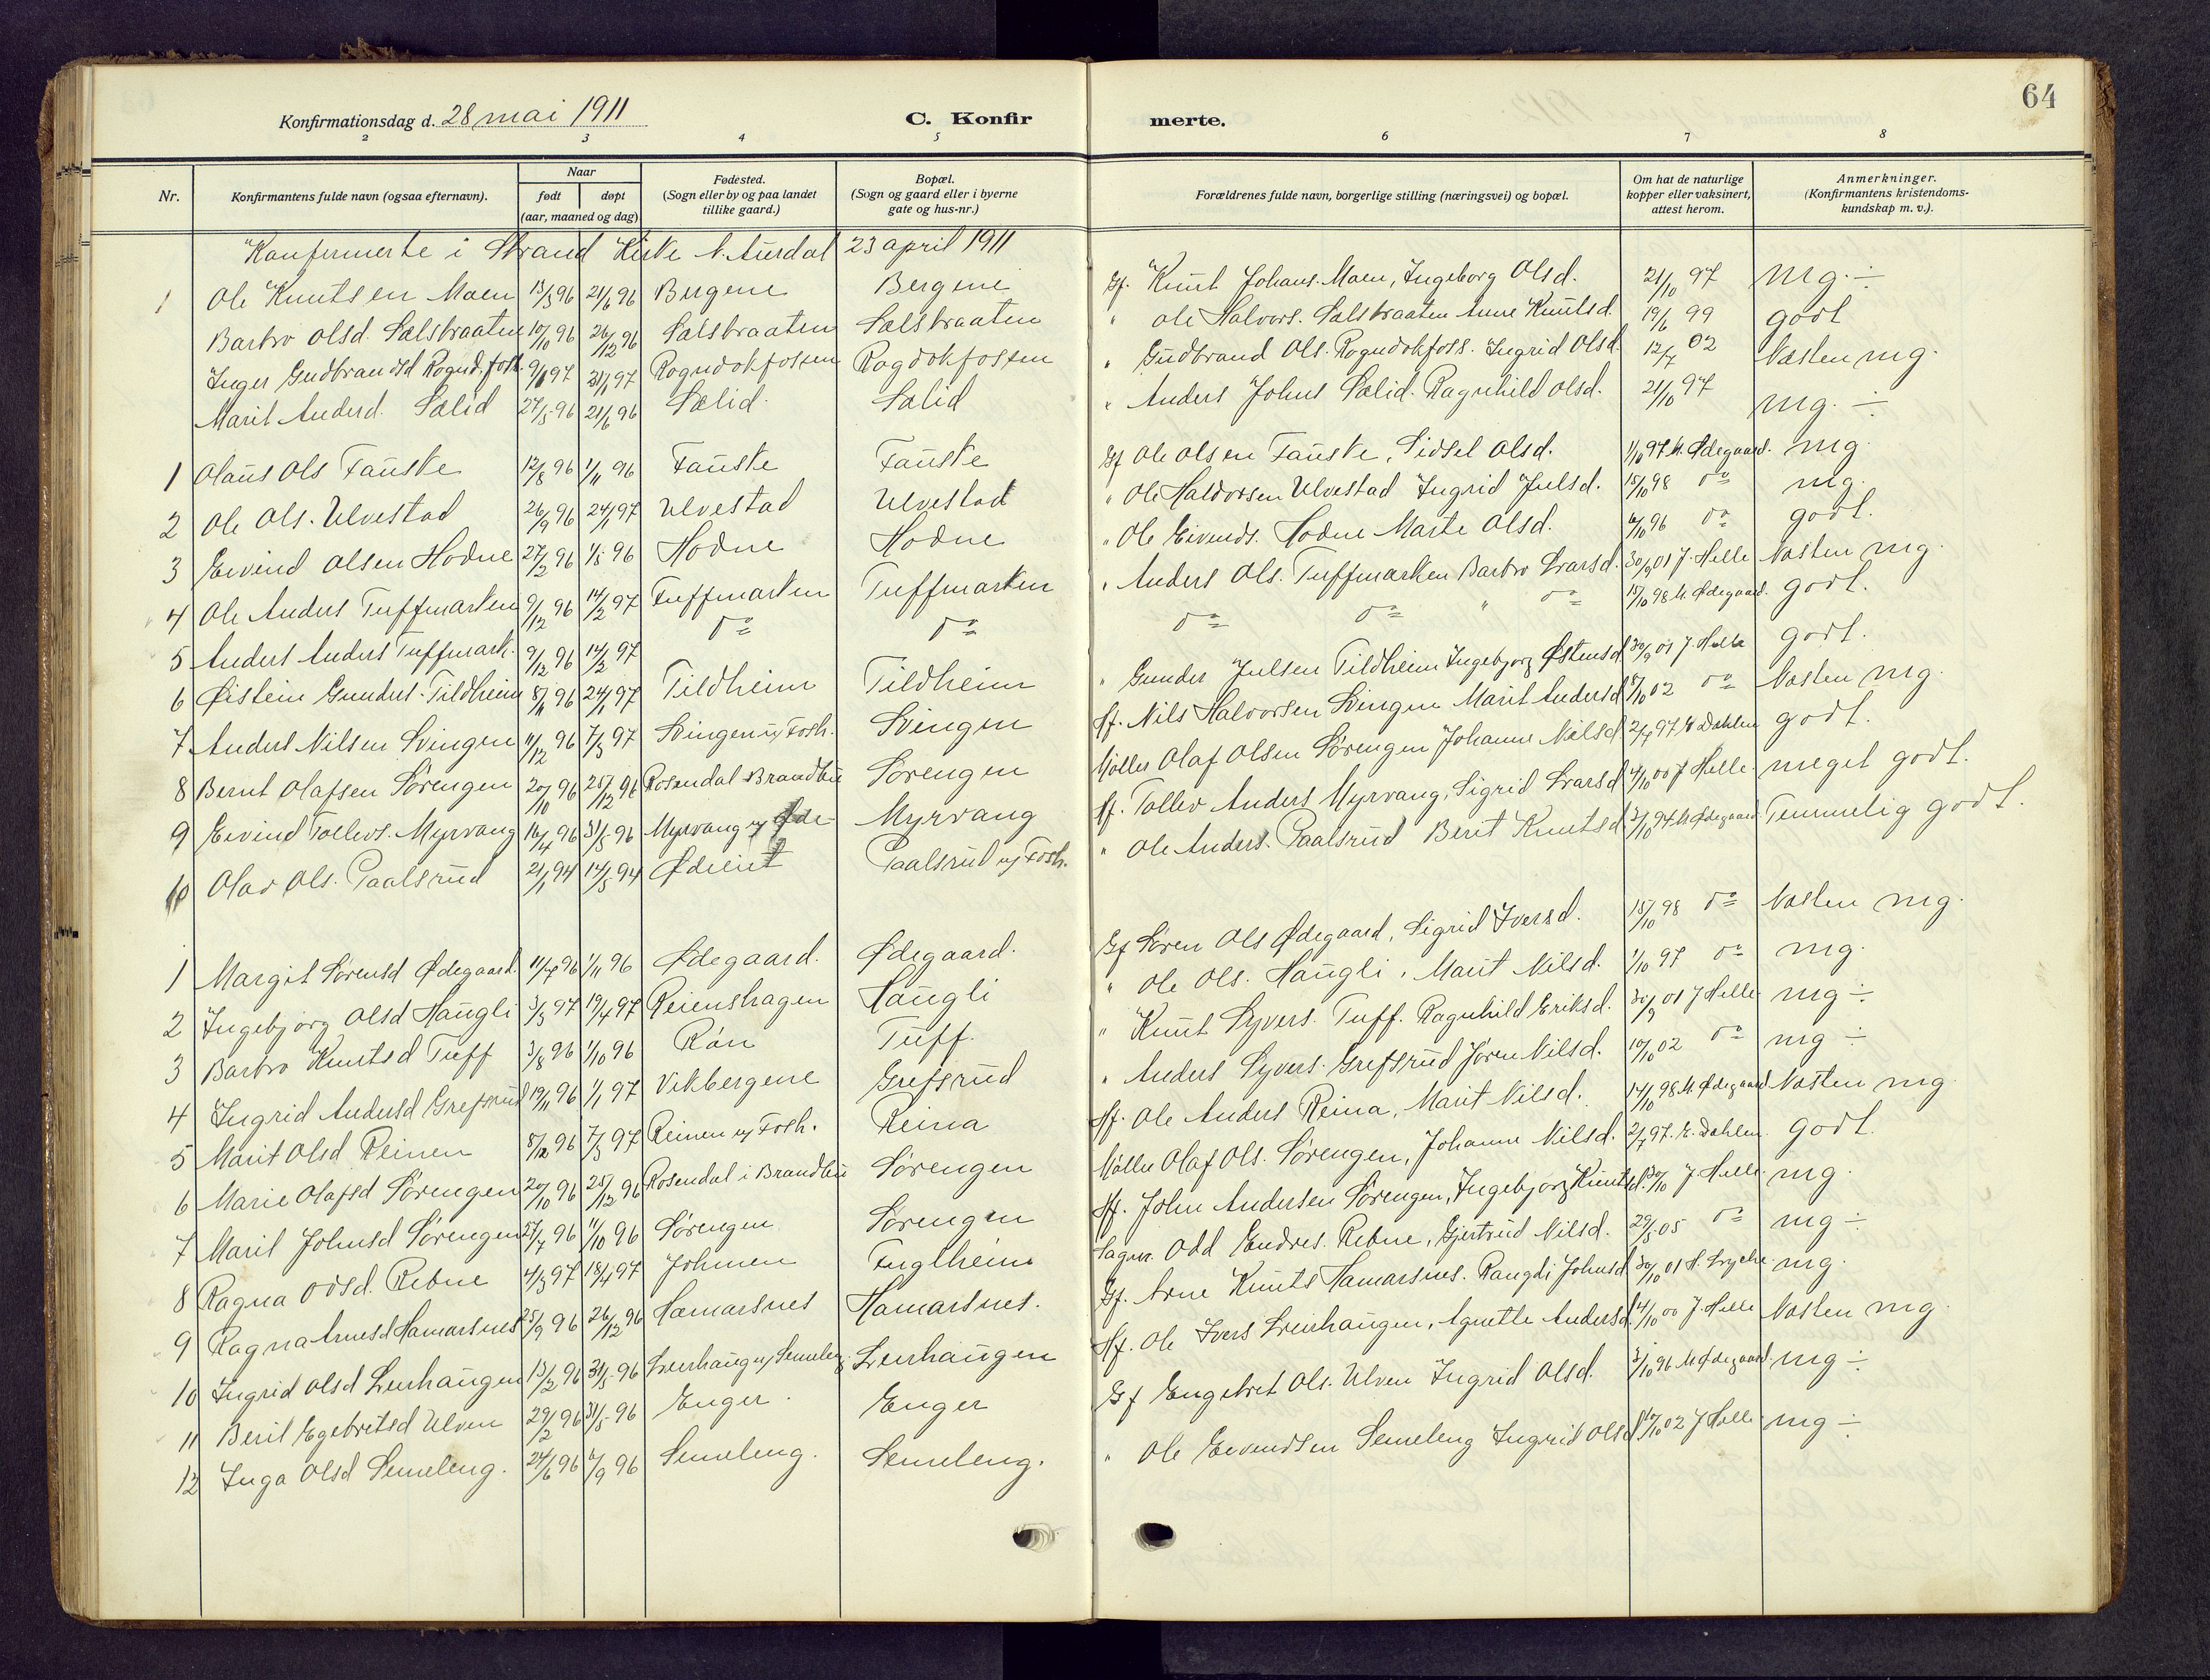 64
Konfirmationsdag d. 28 mai 1911 C. Konfirmerte.
2 3 4 5 6 7 8
Nr. Konfirmantens fulde navn (ogsaa efternavn). Naar født døpt (aar, maaned og dag) Fødested. (Sogn eller by og paa landet tillike gaard.) Bopæl. (Sogn og gaard eller i byerne gate og hus-nr.) Forældrenes fulde navn, borgerlige stilling (næringsvei) og bopæl. Om hat de naturlige kopper eller vaksinert, attest herom. Anmerkninger. (Konfirmantens kristendoms-kundskap m. v.).
Konfirmerte i Strand Kirke N. Aurdal 23 april 1911
1 Ole Knutsen Moen 13/5 96 21/6 96 Bergene Bergene Gf. Knut Johans. Moen, Ingeborg Olsd. 21/10 97 mg. ÷
Barbro Olsd. Sælsbraaten 10/10 96 26/12 96 Sælsbraaten Sælsbraaten " Ole Halvors. Sælsbraaten Anne Knutsd. 19/6 99 godt
Inger Gudbrandsd Rognd.foss. 9/1 97 31/1 97 Rogndokfossen Rogdokfossen " Gudbrand Ols. Rogndokfoss. Ingrid Olsd. 12/7 02 Næsten mg.
Marit Andersd. Sælid 27/5 96 21/6 96 Sælid. Sælid " Anders Johns Sælid. Ragnhild Olsd. 21/10 97 mg. ÷
1 Olaus Ols Fauske 12/8 96 1/11 96 Fauske Fauske Gf Ole Olsen Fauske, Sidsel Olsd. 1/10 97 M. Ødegaard. mg.
2 Ole Ols. Ulvestad 26/9 96 24/1 97 Ulvestad Ulvestad " Ole Haldorsen Ulvestad Ingrid Julsd. 15/10 98 do mg.
3 Eivind Olsen Hodne 27/2 96 1/5 96 Hodne Hodne " Ole Eivends. Hodne Marte Olsd. 6/10 96 do godt.
4 Ole Anders Tuffmarken 9/12 96 14/2 97 Tuffmarken Tuffmarken " Anders Ols. Tuffmarken Barbro Larsd. 30/9 01 J. Helle Næsten mg.
5 Anders Anders Tuffmark. 9/12 96 14/2 97 do do do do " do 15/10 98 M. Ødegaard. godt.
6 Øistein Gunders. Tildheim 8/11 96 24/1 97 Tildheim Tildheim " Gunder Julsen Tildheim Ingebjorg Østensd 30/9 01 J. Helle godt.
7 Anders Nilsen Svingen 11/12 96 7/3 97 Svingen u/ Fosh. Svingen Hf. Nils Halvorsen Svingen Marit Andersd 8/10 02 do Næsten mg.
8 Bernt Olafsen Sørengen 20/10 96 25/12 96 Rosendal Brandbu Sørengen Møller Olaf Olsen Sørengen Johanne Nilsd 2/7 97 E Dahlen godt.
9 Eivind Tollevs. Myrvang 16/4 96 31/5 96 Myrvang u/ Myrvang Hf. Tollev Anders Myrvang, Sigrid Larsd 4/10 00 J Helle. meget godt.
10 Olav Ols. Paalsrud 21/1 94 14/5 94 Paalsrud u/ Fosh. " Ole Anders. Paalsrud Berit Knutsd 3/10 94 M Ødegaard Temmelig godt.
1 Margit Sørensd Ødegaard. 11/7 96 1/11 96 Ødegaard. Ødegaard. Gf Søren Ols Ødegaard, Sigrid Iversd. 15/10 98 do Næsten mg.
2 Ingebjørg Olsd Haugli 3/3 97 19/4 97 Reienshagen Haugli " Ole Ols. Haugli. Marit Nilsd. 1/10 97 do mg.
3 Barbro Knutsd Tuff 3/8 96 1/10 96 Røn Tuff. " Knut Syvers. Tuff. Ragnhild Eriksd. 30/9 01 J Helle mg ÷
4 Ingrid Andersd Grefsrud 19/11 96 1/1 97 Vikbergene Grefsrud " Anders Syvers. Grefsrud Jøren Nilsd. 10/10 02 do mg ÷
5 Marit Olsd Reinen 8/12 96 7/3 97 Reinen u/ Fosh. Reina Hf. Ole Anders Reina, Marit Nilsd. 14/10 98 M. Ødegaard Næsten mg
6 Marie Olafsd Sørengen 20/10 96 25/12 96 Rosendal i Brandbu Sørengen Møller Olaf Ols. Sørengen, Johanne Nilsd. 2/7 97. E. Dahlen. godt.
7 Marit Johnsd Sørengen 27/7 96 11/10 96 Sørengen Sørengen Hf. John Andersen Sørengen, Ingebjorg Knutsd. J Helle. mg.
8 Ragna Odsd. Rebne 4/3 97 18/4 97 Johmen Fuglheim Sagm. Odd Endres. Rebne, Gjertrud Nilsd. 29/5 05 do mg ÷
9 Ragna Arnesd Hamarsnes 25/9 96 26/12 96 Hamarsnes Hamarsnes. Gf. Arne Knuts Hamarsnes. Rangdi Johnsd 30/10 01 mg.
10 Ingrid Olsd Leirhaugen 13/2 96 31/5 96 Leirhaug u/ Semeleng Leirhaugen Hf. Ole Ivers Leirhaugen, Agnette Andersd. 4/10 00 J. Helle Næsten mg.
11 Beril Egebretsd Ulven 29/2 96 31/5 96 Enger. Enger Gf Engebret Ols. Ulven Ingrid Olsd. 3/10 96 M Ødegaard. mg ÷
12 Inga Olsd Semeleng. 24/6 96 6/9 96 Semeleng. Semeleng. " Ole Eivendsen Semeleng Ingrid Olsd 10/10 02 J Helle. mg ÷